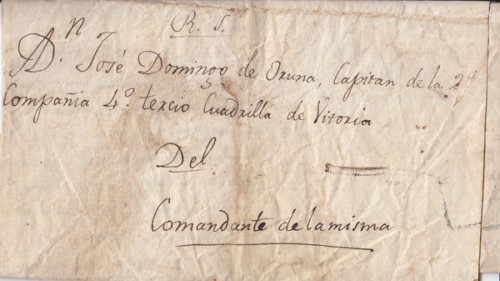 R. S.
A D.n José Domingo de Oruna, Capitan de la 2a
Compañia 4o. tercio Cuadrilla de Vitoria
Del
Comandante de la misma